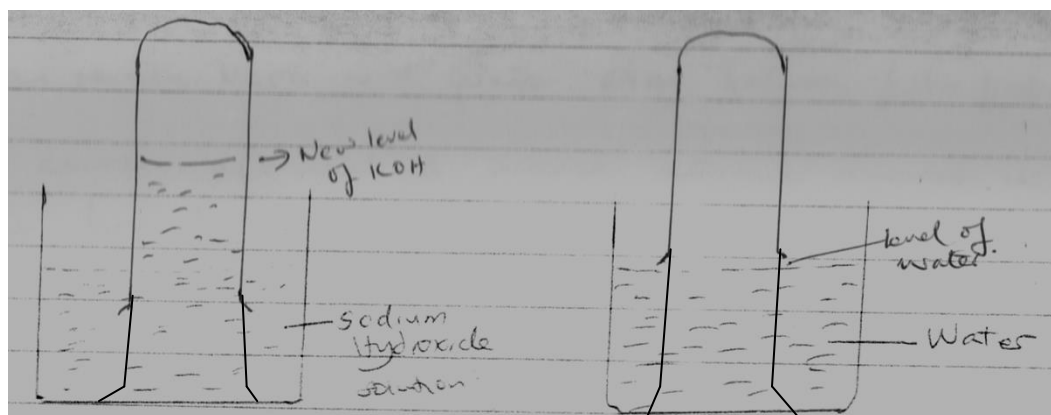 New level
of KOH
Sodium
Hydroxide
solution
level of
water
Water